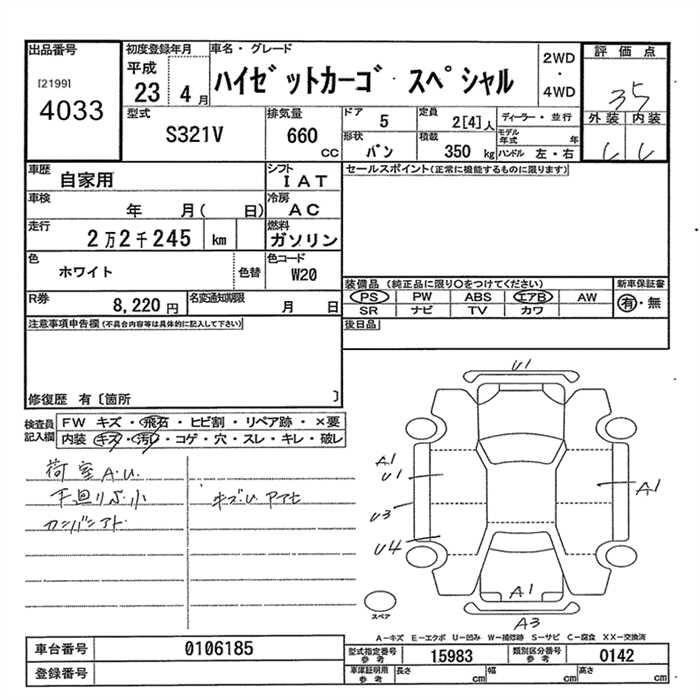 出品番号
[2199]
4033
初度登録年月
平成
23 4月
車名・グレード
ハイゼットカーゴ スペシャル
2WD
・
4WD
評価点
35
外装 内装
U U
型式
S321V
排気量
660
CC
ドア
5
定員
2[4]人
ディーラー・並行
モデル年式 年
形状
バン
積載
350 kg
ハンドル 左・右
車歴
自家用
シフト
IAT
セールスポイント(正常に機能するものに限ります)
車検
年 月( 日)
冷房
AC
走行
2万2千245 km
燃料
ガソリン
色
ホワイト
色替
色コード
W20
装備品 (純正品に限り○をつけてください)
新車保証書
PS PW ABS エアB AW
有・無
SR ナビ TV カワ
R券
8,220 円
名変通知期限
月 日
後日品
注意事項申告欄(不具合内容等は具体的に記入して下さい)
修復歴 有〔箇所 〕
検査員記入欄
FW キズ・飛石・ヒビ割・リペア跡・×要
内装 キズ・汚れ・コゲ・穴・スレ・キレ・破レ
荷室A.U.
カンバンアト
U1
A1
U1
U3
U4
A1
A1
A3
スペア
A-キズ E-エクボ U-凹み W-補修跡 S-サビ C-腐食 XX-交換済
車台番号
0106185
登録番号
型式指定番号
参考
15983
類別区分番号
参考
0142
車庫証明用
参考
長さ cm 幅 cm 高さ cm